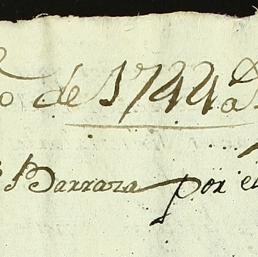 o de 1744 a.s
Barraza por el